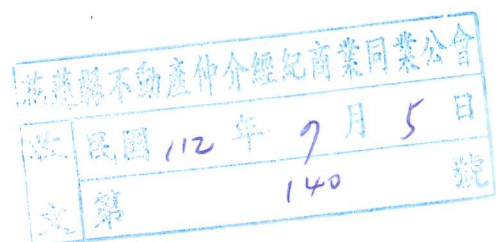 花蓮縣不動產仲介經紀商業同業公會
收文
民國 112 年 9 月 5 日
第 140 號